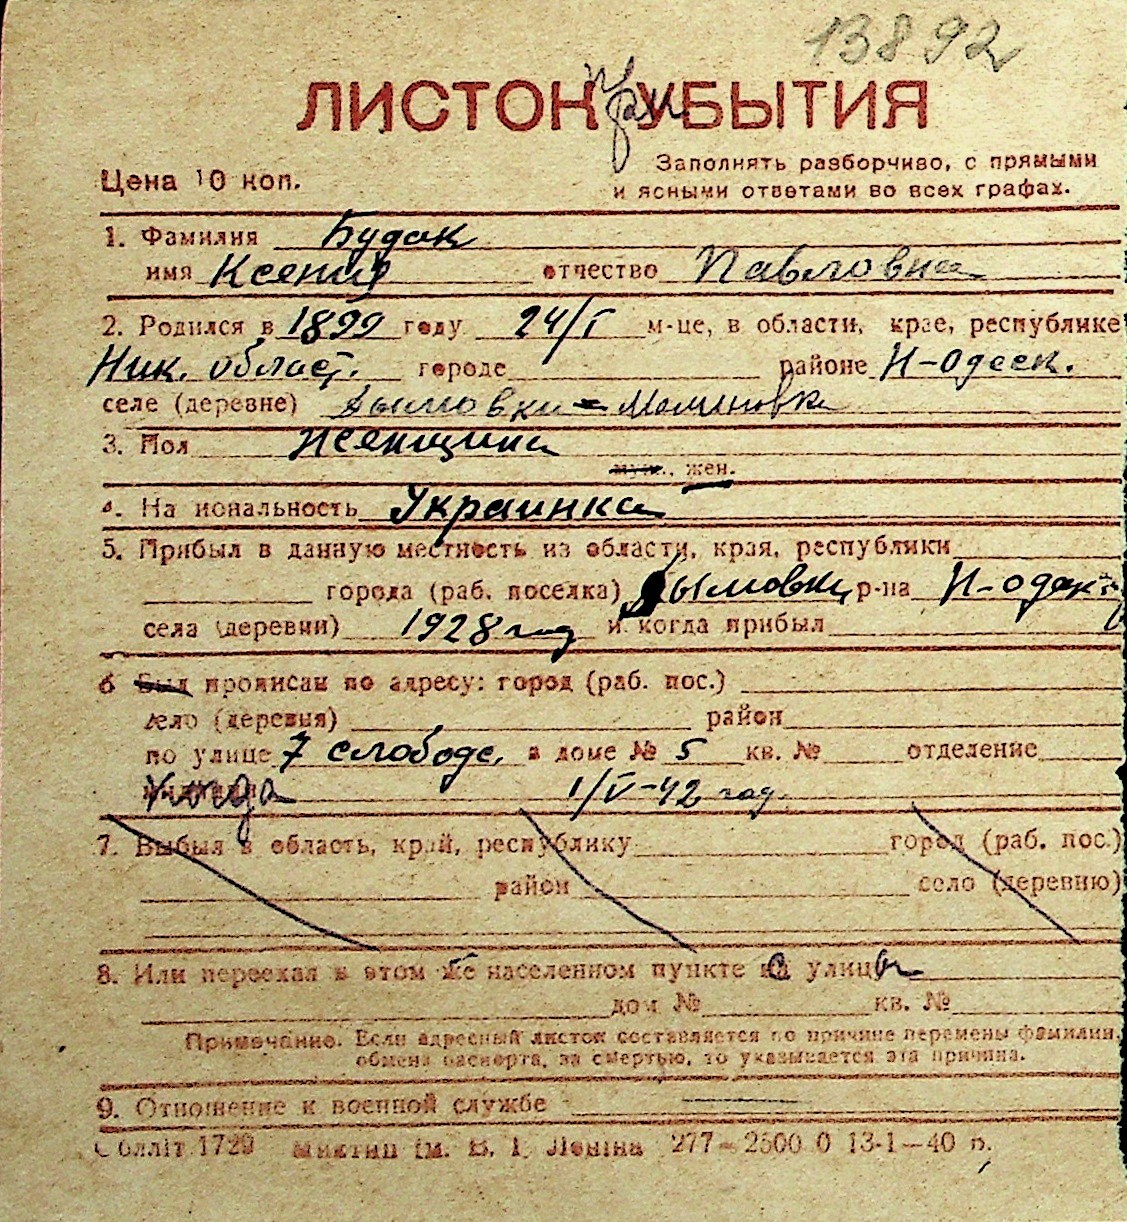 13892
ЛИСТОК при УБЫТИЯ
Заполнять разборчиво, с прямыми
Цена 10 коп. и ясными ответами во всех графах.
1. Фамилия Будак
имя Ксения отчество Павловна
2. Родился в 1899 году 24/I м-це, в области, крае, республике
Ник. област. городе районе Н-Одеск.
селе (деревне) Дымовки - Малиновка
3. Пол Женщина
муж., жен.
4. На иональность Украинка
5. Прибыл в данную местность из области, края, республики
города (раб. поселка) Дымовки р-на Н-одек
села (деревни) 1928 год и когда прибыл
6 Был прописан по адресу: город (раб. пос.)
село (деревня) район
по улице 7 слободе, в доме № 5 кв. № отделение
милиции когда 1/V-42 год.
7. Выбыл в область, край, республику город (раб. пос.)
район село (деревню)
8. Или переехал в этом же населенном пункте с улицы
дом № кв. №
Примечание. Если адресный листок составляется по причине перемены фамилии,
обмена паспорта, за смертью, то указывается эта причина.
9. Отношение к военной службе —
Облліт 1729 ім. В. І. Леніна 277—2500 0 13-1—40 р.